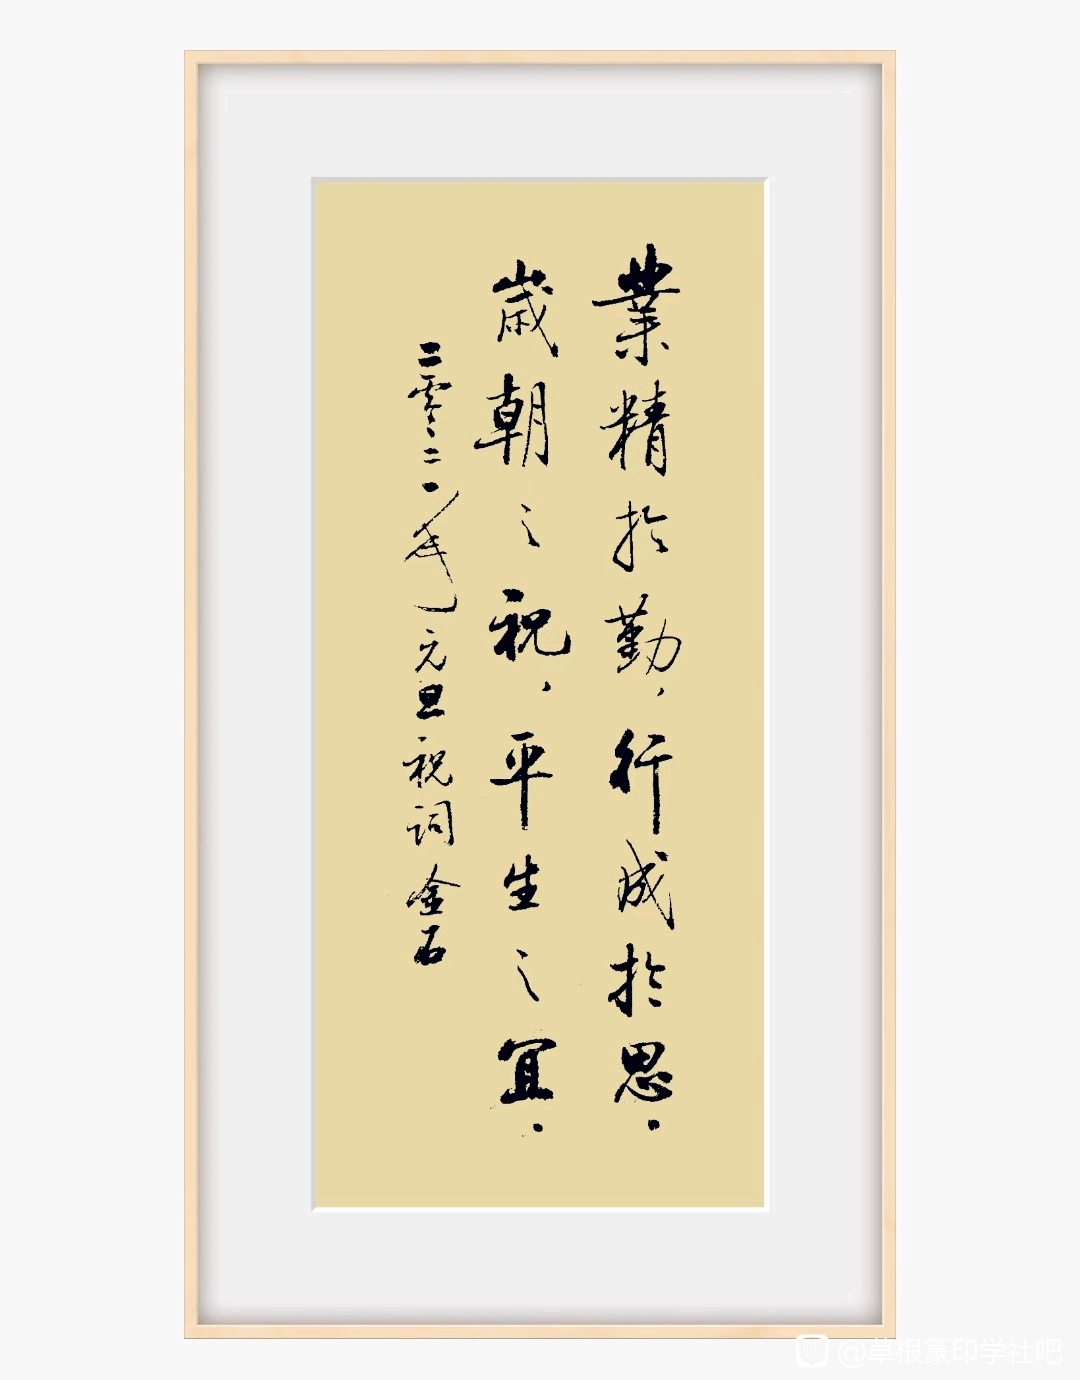 業精於勤，行成於思。
歲朝之祝，平生之宜。
二零二一年元旦祝词金石
@草根篆印学社吧